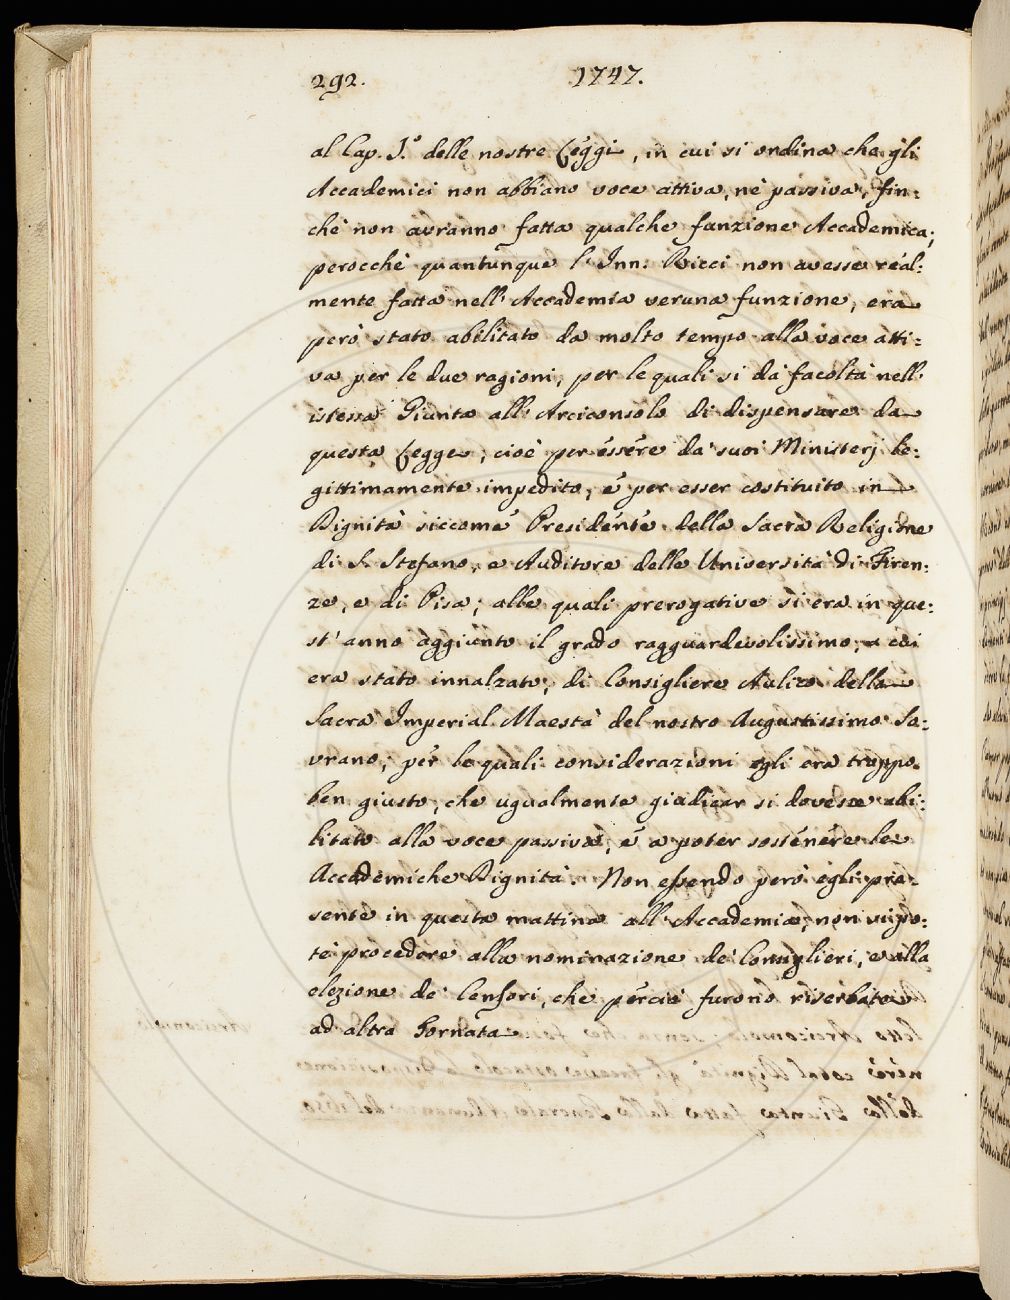 292. 1747.
al Cap. I.° delle nostre Leggi, in cui si ordina che gli
Accademici non abbiano voce attiva, nè passiva, fin:
chè non avranno fatta qualche funzione Accademica;
perocchè quantunque l'Inn: Ricci non avesse real:
mente fatta nell'Accademia veruna funzione, era
però stato abilitato da molto tempo alla voce atti:
va per le due ragioni, per le quali si dà facoltà nell'
istessa Giunta all'Arciconsolo di dispensare da
questa Legge, cioè per éssére da suoi Ministerj le:
gittimamente impedito, e per esser costituito in
Dignità siccome Presidénté della Sacra Religione
di S. Stefano, e Auditore delle Università di Firen:
ze, e di Pisa; alle quali prerogative si era in que:
st'anno aggiunto il grado ragguardevolissimo, a cui
era stato innalzato, di Consigliere Aulico della
Sacra Imperial Maestà del nostro Augustissimo So:
vrano; pér le quali considerazioni egli era troppo
ben giusto, che ugualmente giudicar si dovesse abi:
litato alla voce passiva, e a poter sosténére le
Accademiche Dignità. Non essendo però egli pre:
sente in questa mattina all'Accademia, non si po:
tè procedere alla nominazione de' Consiglieri, e alla
elezione de' Censori, che pérciò furono riserbate
ad altra Tornata.